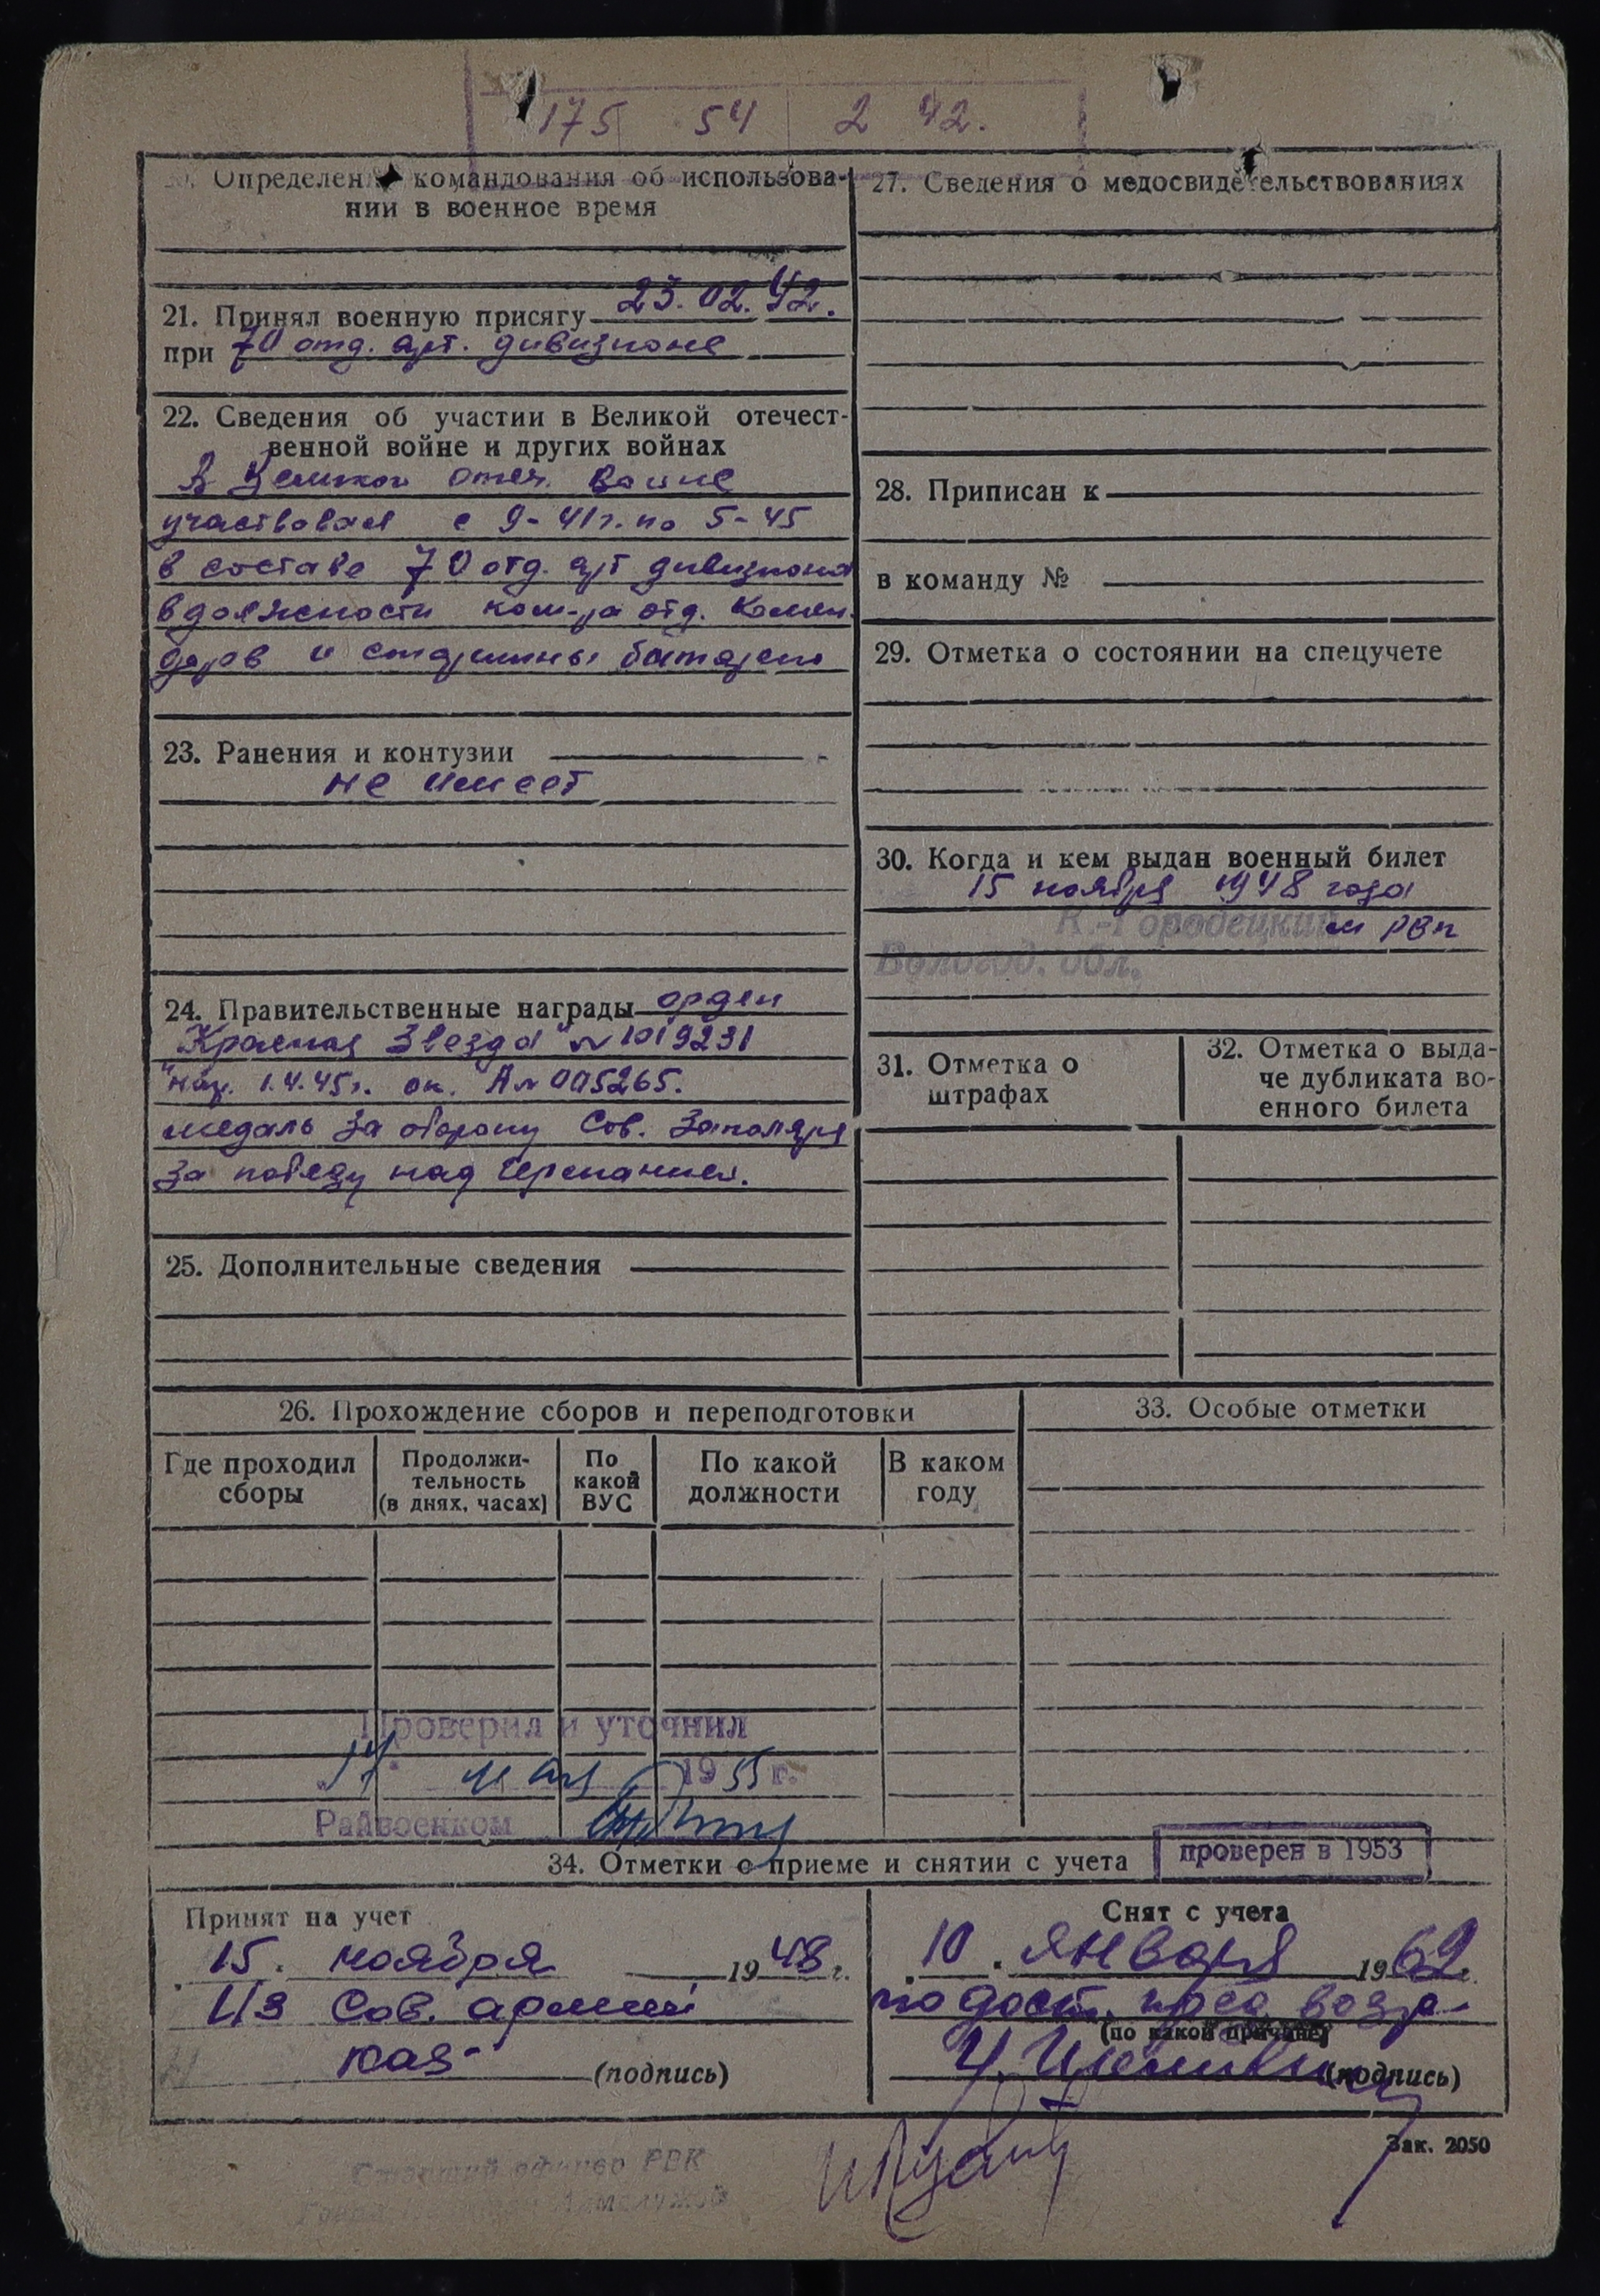 175 54 2 42.
Определен командования об использова-
нии в военное время
21. Принял военную присягу 23.02.42.
при 70 отд. арт. дивизионе
22. Сведения об участии в Великой отечест-
венной войне и других войнах
В Великой отеч. войне
участвовал с 9-41г. по 5-45
в составе 70 отд. арт дивизиона
в должности ком-ра отд. комен-
доров и старшины батареи
23. Ранения и контузии
не имеет
24. Правительственные награды орден
"Красная Звезда" № 1019231
наг. 1.4.45г. ок. А№ 005265.
медаль За оборону Сов. Заполяря
За победу над Германией.
25. Дополнительные сведения
27. Сведения о медосвидетельствованиях
28. Приписан к
в команду №
29. Отметка о состоянии на спецучете
30. Когда и кем выдан военный билет
15 ноября 1948 года
К.-Городецким РВК
Вологод. обл.
31. Отметка о
штрафах
32. Отметка о выда-
че дубликата во-
енного билета
26. Прохождение сборов и переподготовки
Где проходил
сборы
Продолжи-
тельность
(в днях, часах)
По
какой
ВУС
По какой
должности
В каком
году
33. Особые отметки
Проверил и уточнил
мая 1955 г.
Райвоенком
34. Отметки о приеме и снятии с учета
проверен в 1953
Принят на учет
15. ноября 1948 г.
Из Сов. армии
(подпись)
Снят с учета
10. января 1962 г.
по дост. пред. возра-
(по какой причине)
(подпись)
Зак. 2050
Старший офицер РВК